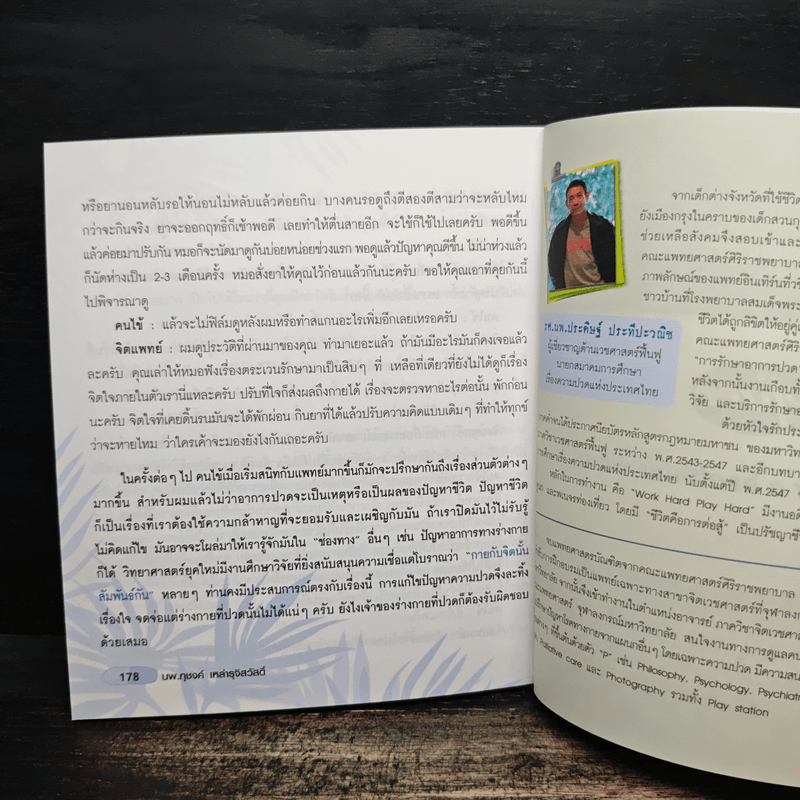 หรือยานอนหลับรอให้นอนไม่หลับแล้วค่อยกิน บางคนรอดูถึงตีสองตีสามว่าจะหลับไหม
กว่าจะกินจริง ยาจะออกฤทธิ์ก็เช้าพอดี เลยทำให้ตื่นสายอีก จะใช้ก็ใช้ไปเลยครับ พอดีขึ้น
แล้วค่อยมาปรับกัน หมอก็จะนัดมาดูกันบ่อยหน่อยช่วงแรก พอดูแล้วปัญหาคุณดีขึ้น ไม่น่าห่วงแล้ว
ก็นัดห่างเป็น 2-3 เดือนครั้ง หมอสั่งยาให้คุณไว้ก่อนแล้วกันนะครับ ขอให้คุณเอาที่คุยกันนี้
ไปพิจารณาดู
คนไข้ : แล้วจะไม่ฟิล์มดูหลังผมหรือทำสแกนอะไรเพิ่มอีกเลยเหรอครับ
จิตแพทย์ : ผมดูประวัติที่ผ่านมาของคุณ ทำมาเยอะแล้ว ถ้ามันมีอะไรมันก็คงเจอแล้ว
ละครับ คุณเล่าให้หมอฟังเรื่องตระเวนรักษามาเป็นสิบๆ ที่ เหลือที่เดียวที่ยังไม่ได้ดูก็เรื่อง
จิตใจภายในตัวเรานี่แหละครับ ปรับที่ใจก็ส่งผลถึงกายได้ เรื่องจะตรวจหาอะไรต่อนั้น พักก่อน
นะครับ จิตใจที่เคยดิ้นรนมันจะได้พักผ่อน กินยาที่ได้แล้วปรับความคิดแบบเดิมๆ ที่ทำให้ทุกข์
ว่าจะหายไหม ว่าใครเค้าจะมองยังไงกันเถอะครับ
ในครั้งต่อๆ ไป คนไข้เมื่อเริ่มสนิทกับแพทย์มากขึ้นก็มักจะปรึกษากันถึงเรื่องส่วนตัวต่างๆ
มากขึ้น สำหรับผมแล้วไม่ว่าอาการปวดจะเป็นเหตุหรือเป็นผลของปัญหาชีวิต ปัญหาชีวิต
ก็เป็นเรื่องที่เราต้องใช้ความกล้าหาญที่จะยอมรับและเผชิญกับมัน ถ้าเราปิดมันไว้ไม่รับรู้
ไม่คิดแก้ไข มันอาจจะโผล่มาให้เรารู้จักมันใน "ช่องทาง" อื่นๆ เช่น ปัญหาอาการทางร่างกาย
ก็ได้ วิทยาศาสตร์ยุคใหม่มีงานศึกษาวิจัยที่ยิ่งสนับสนุนความเชื่อแต่โบราณว่า "กายกับจิตนั้น
สัมพันธ์กัน" หลายๆ ท่านคงมีประสบการณ์ตรงกับเรื่องนี้ การแก้ไขปัญหาความปวดจึงละทิ้ง
เรื่องใจ จดจ่อแต่ร่างกายที่ปวดนั้นไม่ได้แน่ๆ ครับ ยังไงเจ้าของร่างกายที่ปวดก็ต้องรับผิดชอบ
ด้วยเสมอ
178 นพ.ภุชงค์ เหล่ารุจิสวัสดิ์
จากเด็กต่างจังหวัดที่ใช้ชีวิต
ยังเมืองกรุงในคราบของเด็กสวนกุ
ช่วยเหลือสังคมจึงสอบเข้าและ
คณะแพทยศาสตร์ศิริราชพยาบาล
ภาพลักษณ์ของแพทย์อินเทิร์นที่วชิ
ชาวบ้านที่โรงพยาบาลสมเด็จพระ
ชีวิตได้ถูกลิขิตให้อยู่คู่
คณะแพทยศาสตร์ศิริ
"การรักษาอาการปวด"
หลังจากนั้นงานเกือบทั้
วิจัย และบริการรักษาอ
ด้วยหัวใจรักประ
รศ.นพ.ประดิษฐ์ ประทีปะวณิช
ผู้เชี่ยวชาญด้านเวชศาสตร์ฟื้นฟู
นายกสมาคมการศึกษา
เรื่องความปวดแห่งประเทศไทย
ภาคค่ำจนได้ประกาศนียบัตรหลักสูตรกฎหมายมหาชน ของมหาวิท
ภาควิชาเวชศาสตร์ฟื้นฟู ระหว่าง พ.ศ.2543-2547 และอีกบทบาท
การศึกษาเรื่องความปวดแห่งประเทศไทย นับตั้งแต่ปี พ.ศ.2547
หลักในการทำงาน คือ "Work Hard Play Hard" มีงานอดิ
และพเนจรท่องเที่ยว โดยมี "ชีวิตคือการต่อสู้" เป็นปรัชญาชีวิ
จบแพทยศาสตรบัณฑิตจากคณะแพทยศาสตร์ศิริราชพยาบาล
การฝึกอบรมเป็นแพทย์เฉพาะทางสาขาจิตเวชศาสตร์ที่จุฬาลงก
จากนั้นจึงเข้าทำงานในตำแหน่งอาจารย์ ภาควิชาจิตเวชศาส
แพทยศาสตร์ จุฬาลงกรณ์มหาวิทยาลัย สนใจงานทางการดูแลคน
ปัญหาโรคทางกายจากแผนกอื่นๆ โดยเฉพาะความปวด มีความสน
ต่างๆ ที่ขึ้นต้นด้วยตัว "P" เช่น Philosophy, Psychology, Psychiatr
Palliative care และ Photography รวมทั้ง Play station